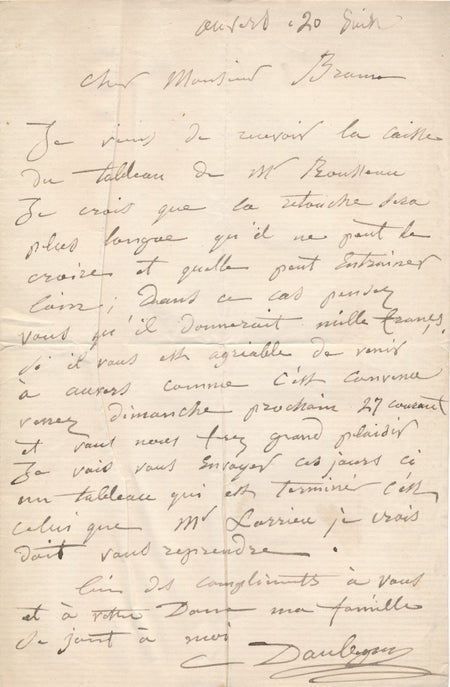 auvers 20 Juin
Cher Monsieur Brame
Je viens de recevoir la caisse
du tableau de Mr Rousseau
Je crois que la retouche sera
plus longue qu'il ne peut le
croire et quelle peut Entrainer
loin; Dans ce cas pensez
vous qu'il donnerait mille francs,
Si il vous est agréable de venir
à auvers comme c'est convenu
venez dimanche prochain 27 courant
et vous nous ferez grand plaisir
Je vais vous Envoyer ces jours ci
un tableau qui est terminé c'est
celui que Mr Larrieu je crois
doit vous reprendre.
bien des compliments à vous
et à votre Dame ma famille
se joint à moi
C Daubigny